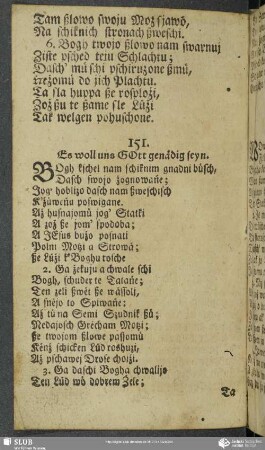 Tam ßlowo swoju Moz sjawö,
Na schiknich stronach ßweschi.
6. Bogo twojo ßlowo nam swarnuj
Ziste psched tem Schlachtu;
Dasch' mü schi pschiruzone ßmü,
do zich Plachtu.
Ta sla huppa ße rosploži,
Zož ßu te ßame sle Lüži
Tak welgen pohuschone.
151.
Es woll uns GOtt genädig seyn.
BOgh kschel nam schiknim gnadni büsch,
Dasch swojo žognowañe;
Jog' hoblizo dasch nam ßweschisch
K'žüwcñu poswigane.
Až husnajomü jog' Statki
A zož ße jom' spodoba;
A JEsus bužo posnati
Polni Motzi a Strowä;
ße Lüži k'Boghu rosche
2. Ga žekuju a chwale schi
Bogh, schuder te Tatañe;
Ten zeli ßwět ße wäßoli,
A snějo to Spiwañe:
Až tü na Semi Szudnik ßü;
Nedajosch Grěcham Motzi;
ße twojom ßlowe passomü
Kěnž schicken Lüd roshuzi,
Až pschawej Drose choizi.
3. Ga daschi Bogha chwalijo
Ten Lüd wö dobrem Zele;
Ta
SLUB
Wir führen Wissen.